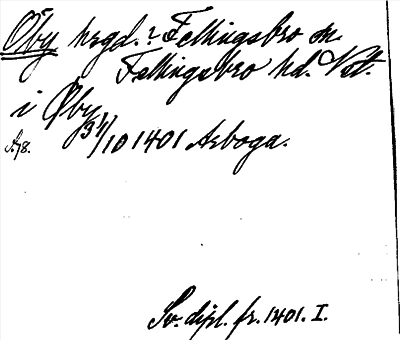 Öby hrgd.? Fellingsbro sn.
Fellingsbro hd. Vstm.
i Øby
31/10 1401 Arboga.
Sv. dipl. fr. 1401. I.